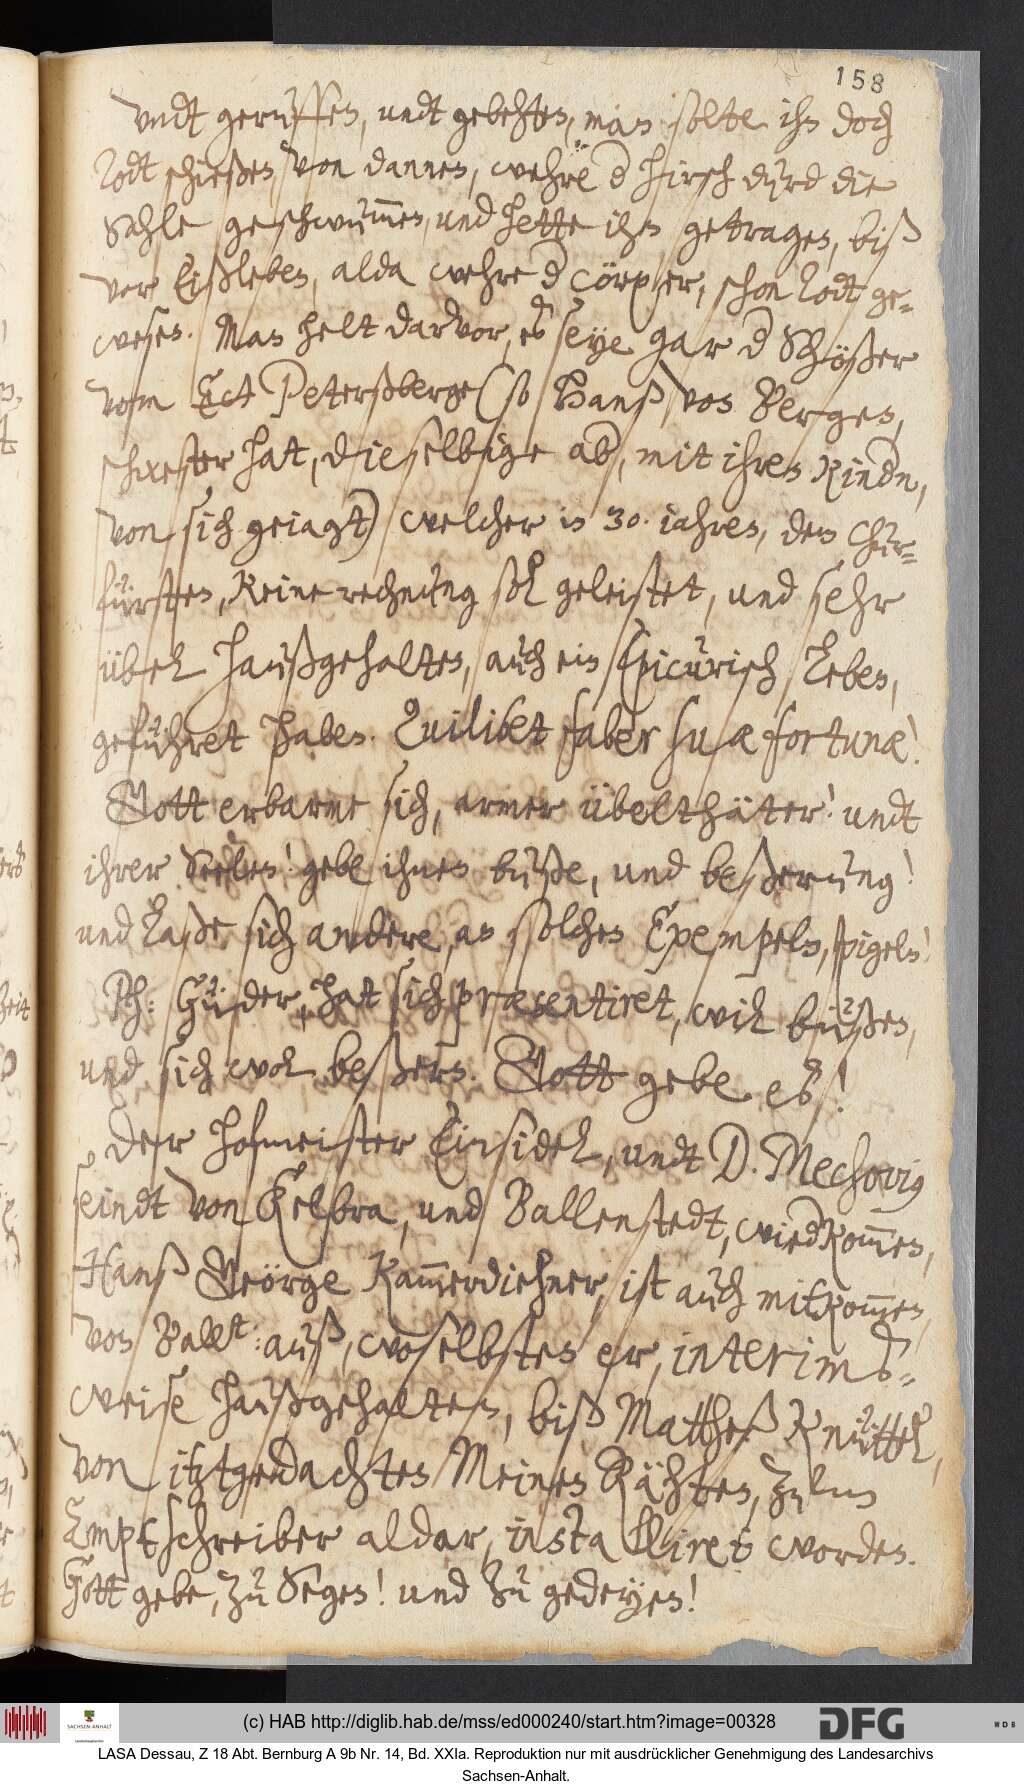 158
undt geruffen, undt gebehten, man solte ihn doch
todt schießen, von dannen, wehre d hirsch durch die
Sahle geschwummen, und hette ihn getragen, biß
vor Eißleben, alda wehre d cörper, schon todt ge-
wesen. Man helt darvor, es seye gar d Schößer
vom Petersberge (so Hanß von Bergen,
schwester hat, dieselbige ab, mit ihren Kindn,
von sich geiagt) welcher in 30. iahren, dem Chur-
fürsten, Keine rechnung sol geleistet, und sehr
übel haußgehalten, auch ein Epicurisch Leben,
geführet haben. Quilibet faber suæ fortunæ!
Gott erbarme sich, armer übelthäter! undt
ihrer Seelen! gebe ihnen buße, und beßerung!
und laße sich andere, an solchen Exempeln, spigeln!
Ph: Güder, hat sich præsentiret, wil büßen,
und sich wol beßern. Gott gebe es!
Der hofmeister Einsidel, undt D. Mechovius
seindt von Kelbra, und Ballenstedt, wiedkommen,
Hanß Geörge Kammerdiehner, ist auch mitkommen,
von Ballst: auß, woselbsten er, interims-
weise haußgehalten, biß Mattheß Knüttel,
von itztgedachten Meinen Rähten, zum
Amptschreiber aldar, installiret worden.
Gott gebe, zu Segen! und zu gedeyen!
(c) HAB http://diglib.hab.de/mss/ed000240/start.htm?image=00328
SACHSEN-ANHALT
DFG
WDB
LASA Dessau, Z 18 Abt. Bernburg A 9b Nr. 14, Bd. XXIa. Reproduktion nur mit ausdrücklicher Genehmigung des Landesarchivs
Sachsen-Anhalt.